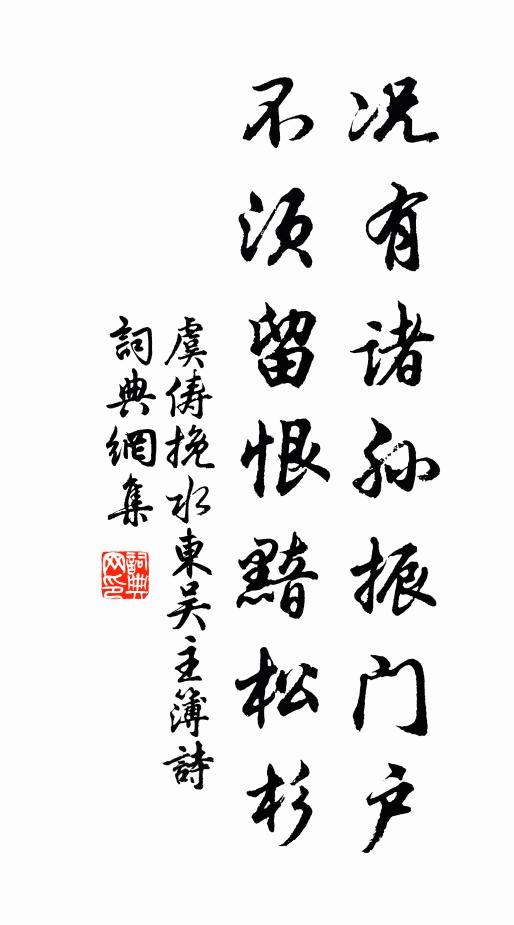 况有诸孙振门户
不须留恨黯松杉
虞儔挽水東吴主簿詩
詞典網集
詞典网印